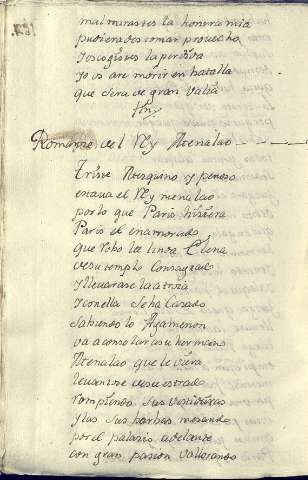 mal mirastes la honrra mia
pudierades tomar prouecho
y escogistes la perdida
yo os are morir en batalla
que sera de gran valia
fin
Romanze del Rey Menalao
Triste Mesquino y penoso
estaua el Rey menalao
por lo que Paris hiziera
Paris el enamorado
que robo la linda Elena
de su templo Consagrado
y lleuarase la a troia
y con ella se ha Casado
Sabiendo lo Agamenon
va a consolar a su hermano
Menalao que le viera
leuantose de su estrado
rompiendo sus vestiduras
y las sus barbas mesando
por el palazio adelante
con gran pasion vallorando